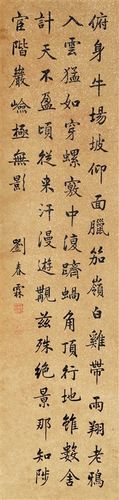 俯身牛場坡仰面臘笳嶺白雞帶雨翔老鴉
入雲猛如穿螺竅中湏躋蝸角頂行地雖數舍
計天不盈頃從來汗漫遊覯茲殊絕景那知陟
官階巖嶮極無影
劉春霖